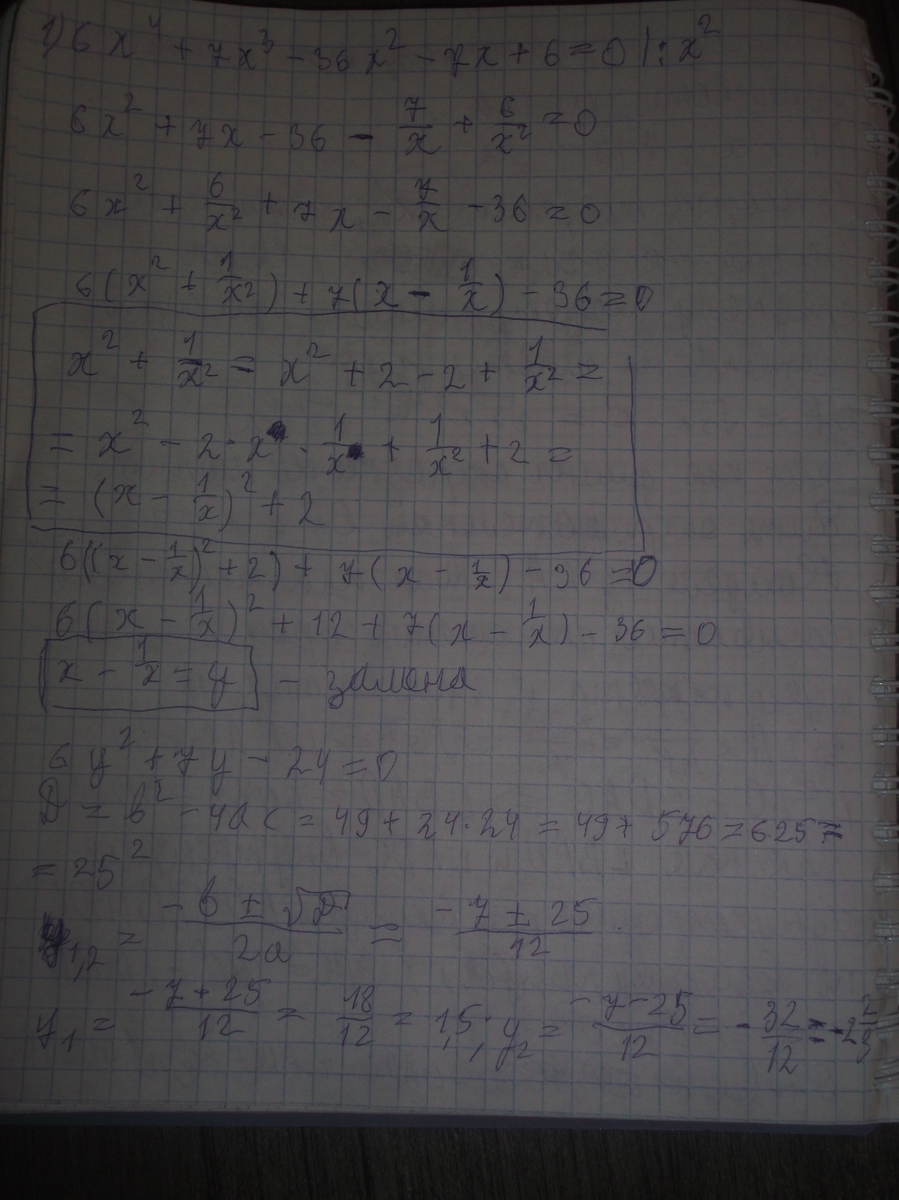 1) 6x⁴ + 7x³ - 36x² - 7x + 6 = 0 |: x²
6x² + 7x - 36 - 7/x + 6/x² = 0
6x² + 6/x² + 7x - 7/x - 36 = 0
6(x² + 1/x²) + 7(x - 1/x) - 36 = 0
x² + 1/x² = x² + 2 - 2 + 1/x² =
= x² - 2 · x · 1/x + 1/x² + 2 =
= (x - 1/x)² + 2
6((x - 1/x)² + 2) + 7(x - 1/x) - 36 = 0
6(x - 1/x)² + 12 + 7(x - 1/x) - 36 = 0
x - 1/x = y - замена
6y² + 7y - 24 = 0
D = b² - 4ac = 49 + 24·24 = 49 + 576 = 625 =
= 25²
y₁,₂ = (-b ± √D)/2a = (-7 ± 25)/12
y₁ = (-7 + 25)/12 = 18/12 = 1,5; y₂ = (-7 - 25)/12 = -32/12 = -2 2/3